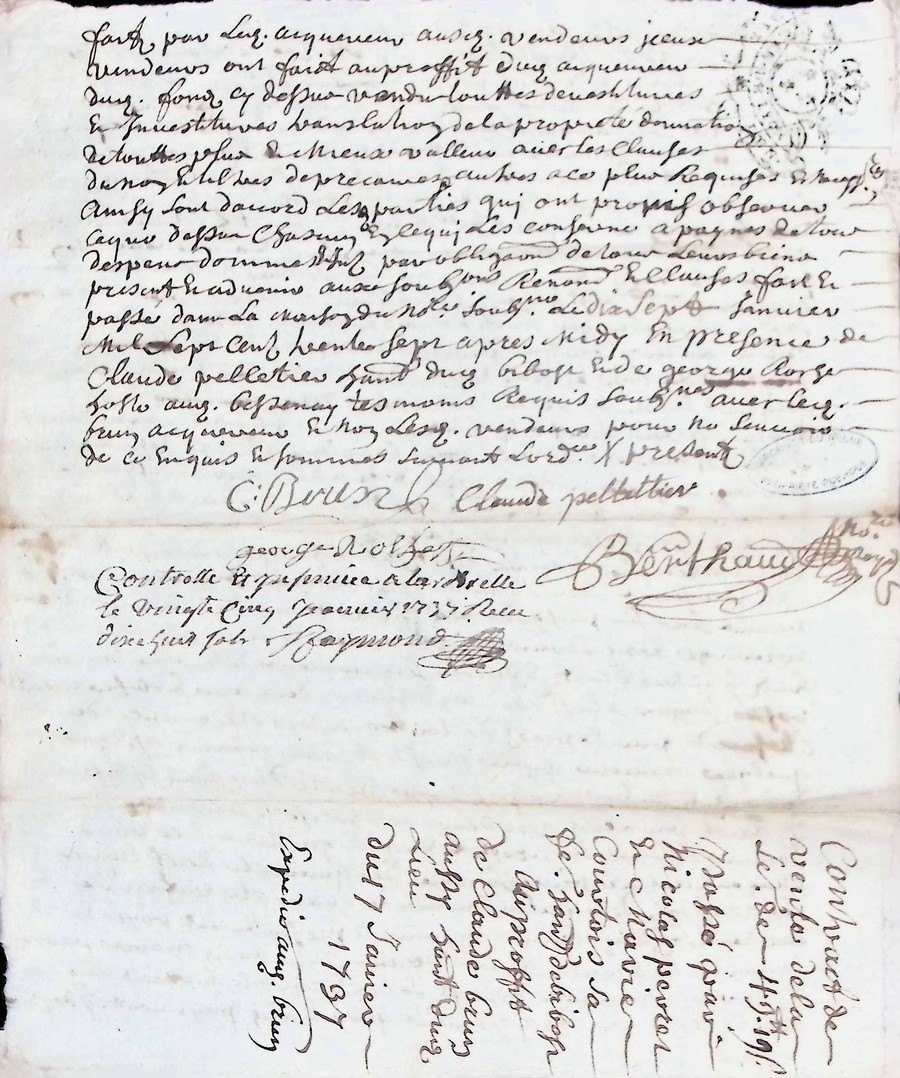 faitz par lesq. acquereur ausq. vendeurs iceux
vendeurs ont faict au proffit dudq acquereur
dudq. fondz cy dessus vendu touttes devestitures
Et Investitures translation de la proprieté donnation
de touttes plus Et Mieux valleur avec les Clauses
du nom Et tiltres de precaires autres a ce plus Requises Et
Ainsy sont daccord Lesq parties qui ont promis observer
ce que dessus Chascung En ce qui Les conserne a paynes de tous
despens dommes Intz par obligaon de tous Leurs biens
present Et advenir aux soubzons Renons Et Clauses fait Et
passé dans La maison du Nore soubzne Le dix Sept Janvier
Mil Sept Cent trente sept apres Midy En presence de
Claude pelletier hant dudq bibost Et de george
hoste audq. bessenay tesmoins Requis soubznes avec lesq.
brun acquereur Et non Lesq. vendeurs pour ne scavoir
de ce Enquis Et sommes suivant Lordce X present
C: Brun Claude pellettier
george
Berthaud No.re royal
Controllé Et a larbrelle
le vingte Cinq Janvier 1737 Receu
dixe huit sols Raymond
Contract de
vente de la
de 49lt 19s
passé par
Nicolas
Et Marie
Courtois sa
fe. hantz de bibost
Au proffit
de Claude brun
aussy hant dudq
Lieu
du 17 Janvier
1737
Expedié audq. brun